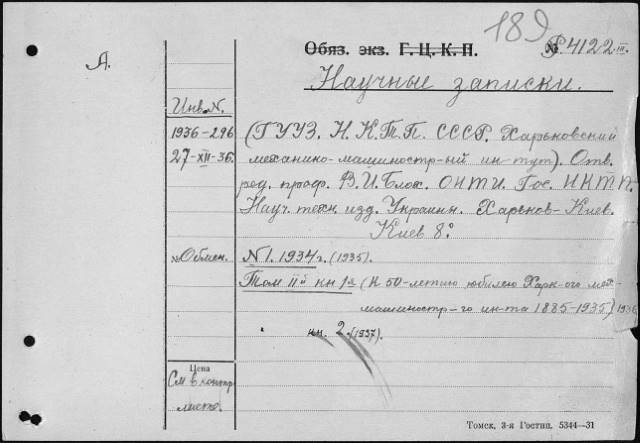 189
Обяз. экз. Г.Ц.К.П. № 4122 III.
А.
Научные записки.
Инв. N.
1936-296
27-XII-36.
(ГУУЗ. Н.К.Т.П. СССР. Харьковский
механико-машиностр-ый ин-тут). Отв.
ред. проф. В.И.Блох. ОНТИ. Гос. НКТП.
Науч. техн. изд. Украины. Харьков-Киев.
Киев 8°.
№ Обмен. N1. 1934г. (1935).
Том IIй кн 1я (К 50-летию юбилею Харк-ого мех.
машиностр-го ин-та 1885-1935) 1936
" кн. 2 (1937).
Цена
См в контр
листе.
Томск, 3-я Гостип. 5344—31